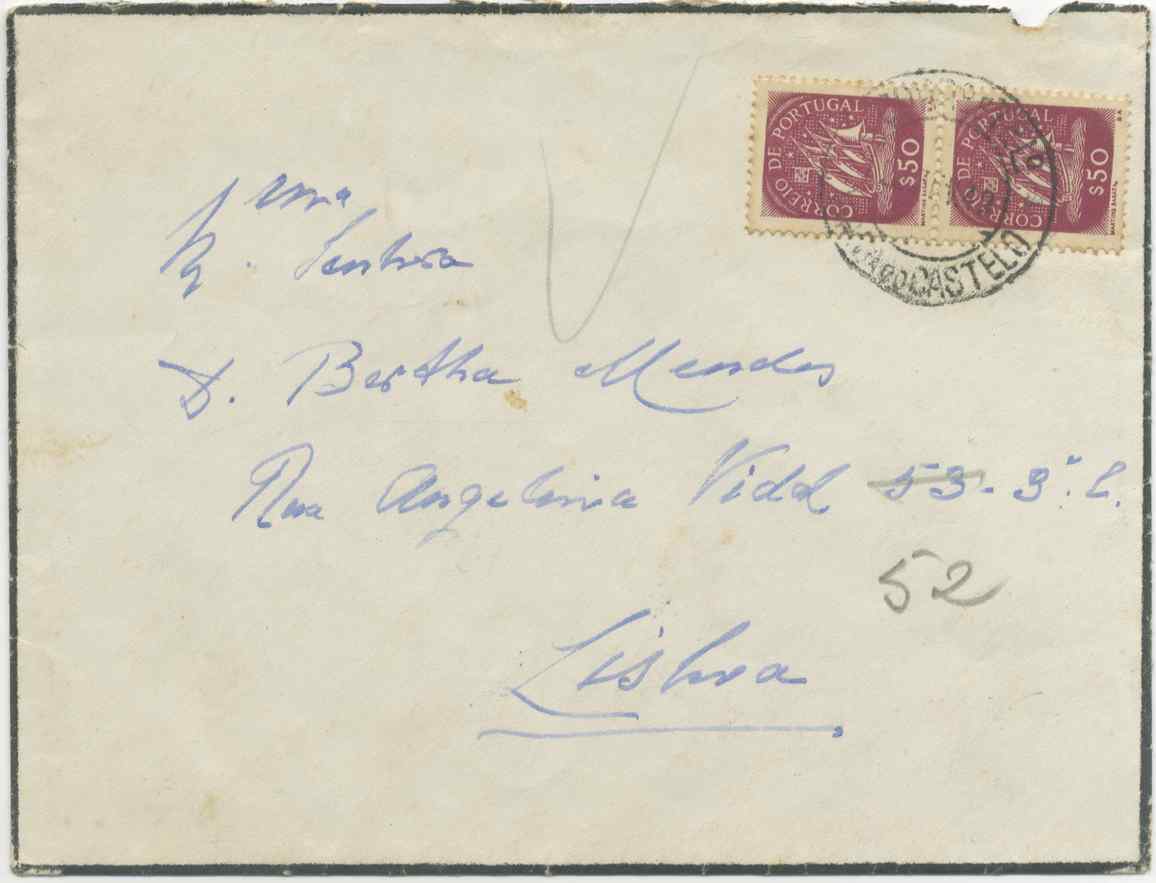 CORREIO DE PORTUGAL
$50
CORREIO DE PORTUGAL
$50
CASTELO
Ema
Senhora
D. Bertha Mendes
Rua Angelina Vidal 53-3º.E.
52
Lisboa